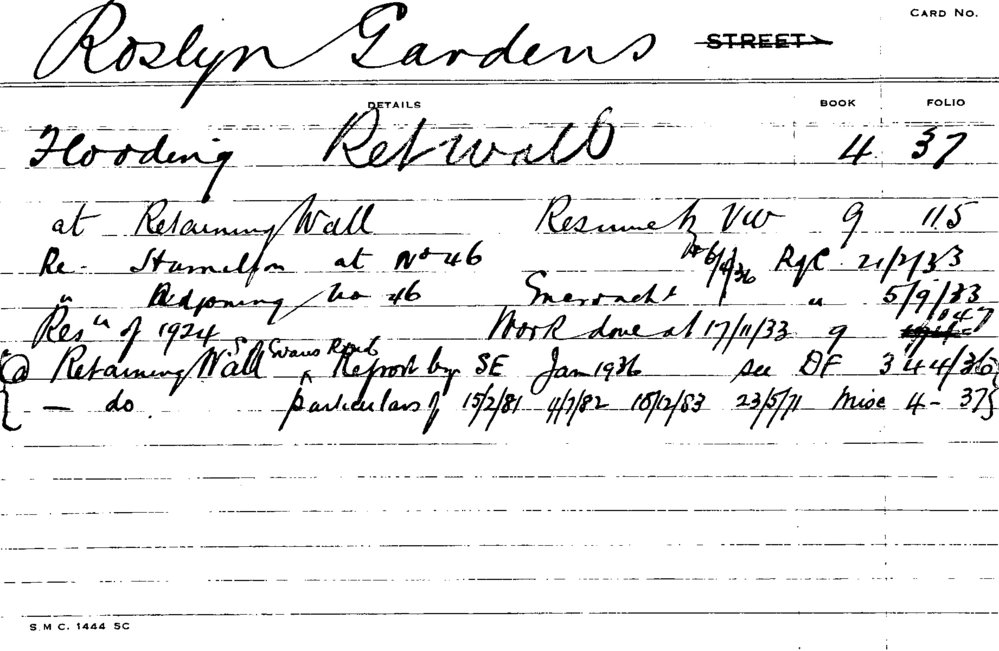 CARD NO.
Roslyn Gardens STREET
DETAILS BOOK FOLIO
Flooding Ret Wall 4 37
at Retaining Wall VW 9 115
Re. Hamilton at No 46 6/4/36 RgC 21/2/33
" Adjoining No 46 " 5/9/33
Resn of 1924 Work done at 17/11/33 9 1047
@ Retaining Wall S of Evans Road Report by SE Jan 1936 see DF 344/36
— do. particulars of 15/2/81 4/7/82 18/12/83 23/5/71 Misc 4 - 37
S.M.C. 1444 5C